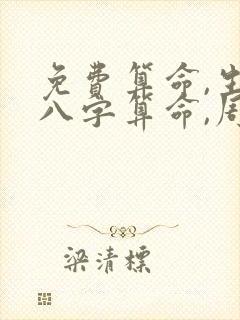 免费算命,生
八字算命,周
梁清標